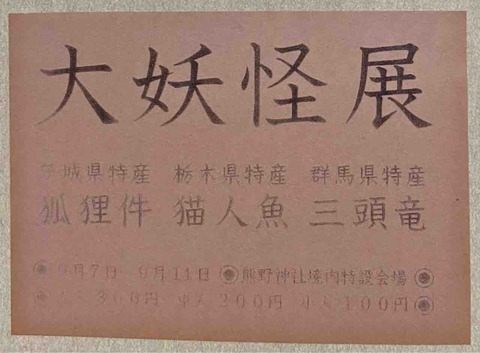 大妖怪展
茨城県特産 栃木県特産 群馬県特産
狐狸件 猫人魚 三頭竜
9月7日-9月14日 ◉熊野神社境内特設会場◉
300円 中人200円 小人100円◉